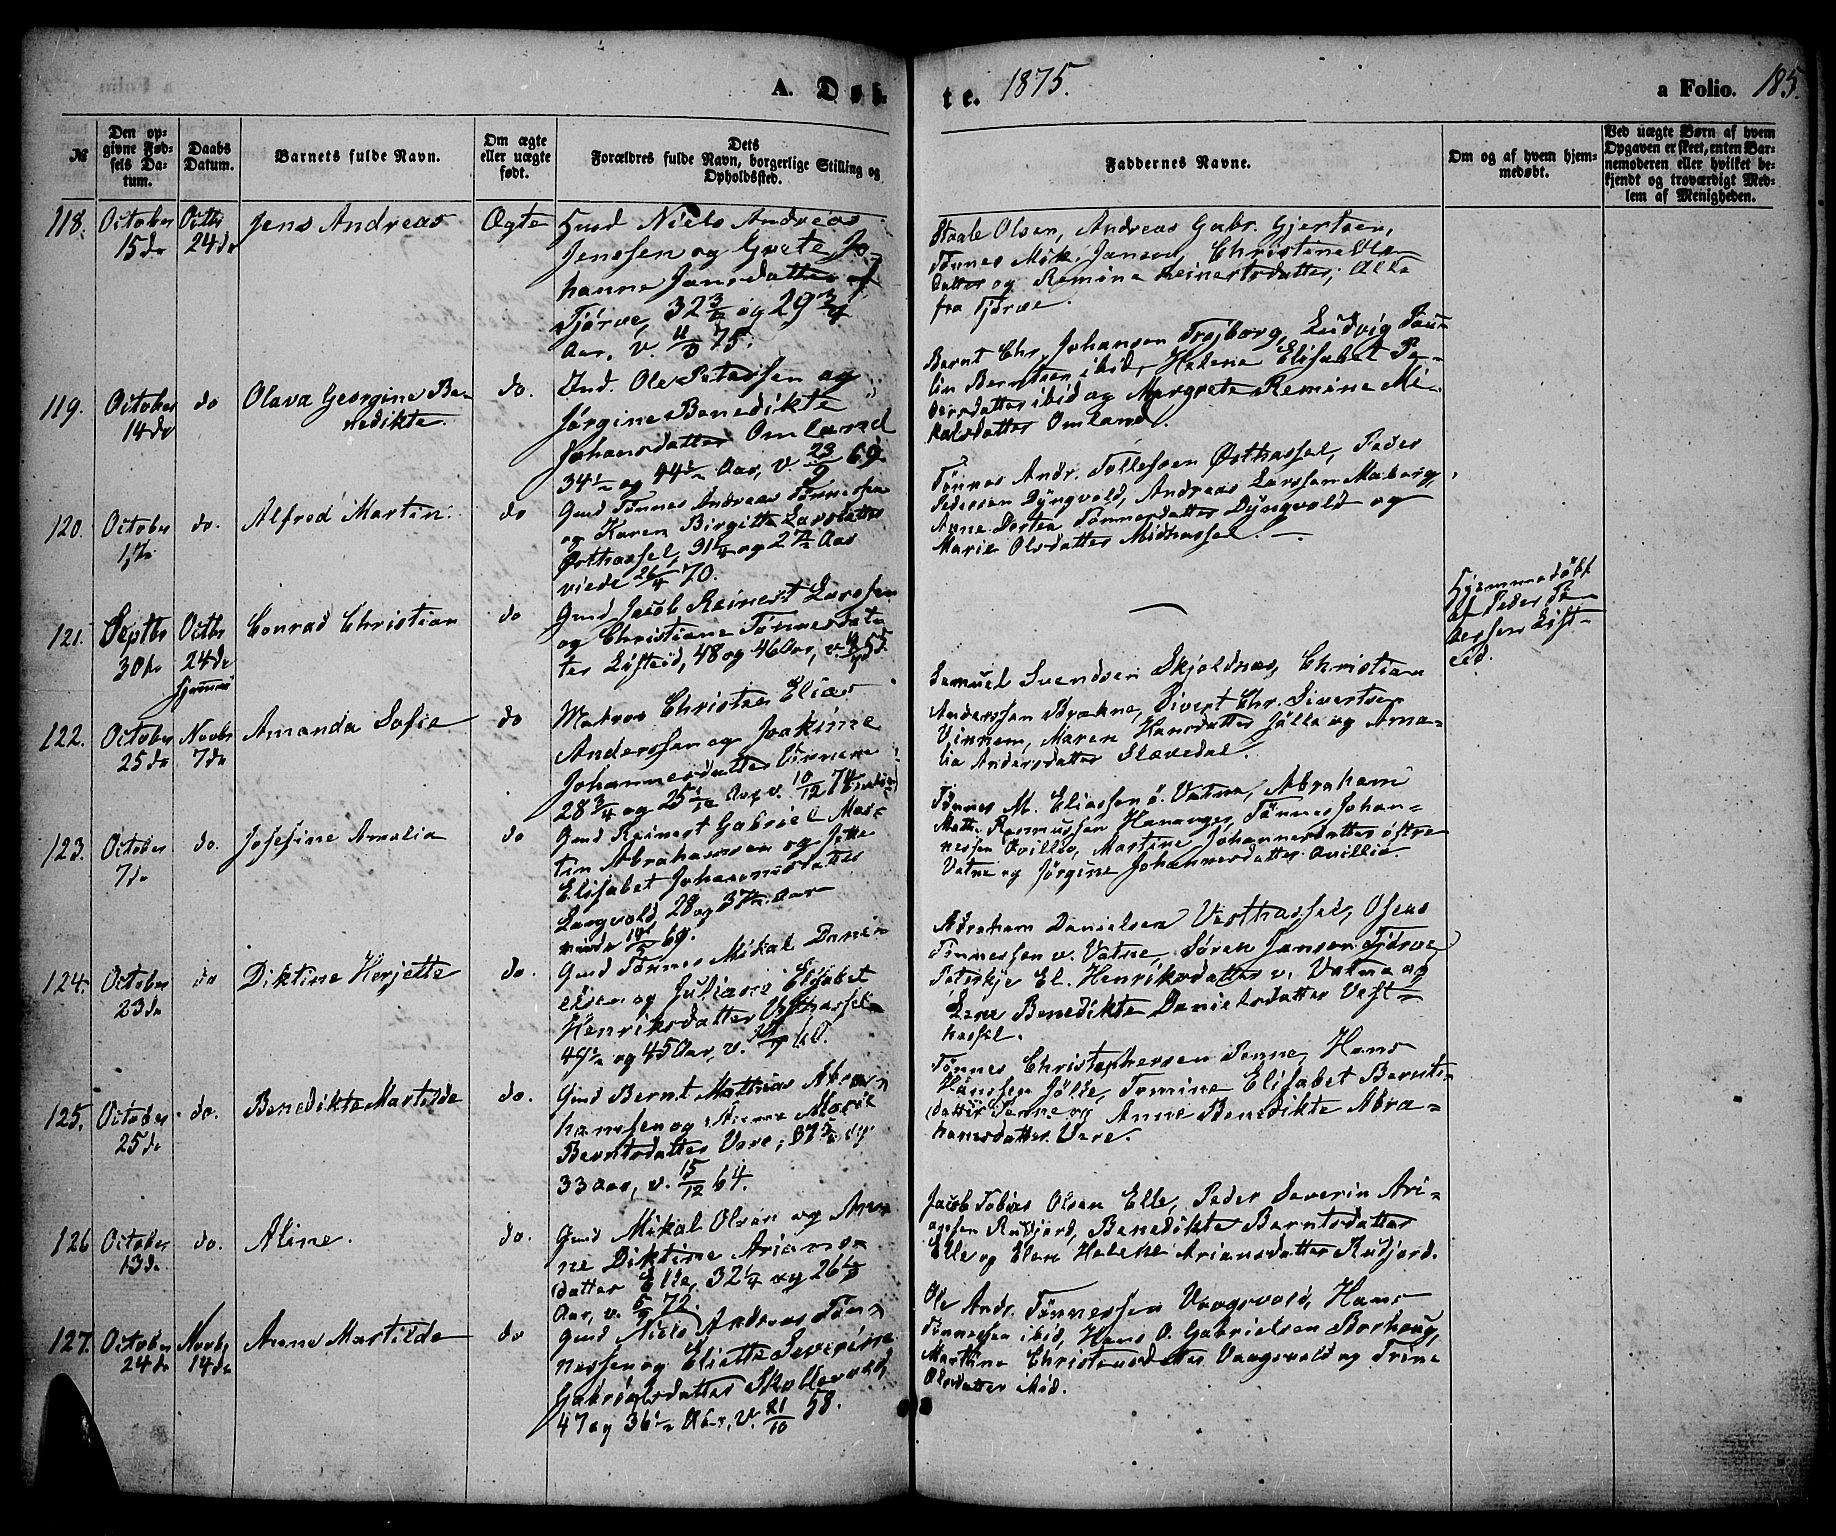 A. Døb-
te. 1875.
a Folio. 185.
№
Den op-
givne Fød-
sels Da-
tum.
Daabs
Datum.
Barnets fulde Navn.
Om ægte
eller uægte
født.
Dets
Forældres fulde Navn, borgerlige Stilling og
Opholdssted.
Faddernes Navne.
Om og af hvem hjem-
medøbt.
Ved uægte Børn af hvem
Opgaven er skeet, enten Bar-
nemoderen eller hvilket be-
kjendt og troværdigt Med-
lem af Menigheden.
118. October
15de
Octbr
24de
Jens Andreas
Ægte
Niels Andreas
Jenssen og Grete Jo-
hanne Jansdatter af
Tjørve, 32 og 29 3/4
Aar, v. 75.
Staale Olsen, Andreas Gabr. Gjertsen,
Tønnes Mik. Jansen, Christine
datter og Remine Reinertsdatter, Alle
fra Tjørve.
119. October
14de
do
Olava Georgine Be-
nedikte.
do.
Ind. Ole Petersen og
Jørgine Benedikte
Johansdatter Omland
34½ og 44½ Aar, v. 23/9 69.
Bernt Chr. Johansen Trojborg, Ludvig Pau-
lin Berntsen ibid, Helene Elisabet Pe-
dersdatter ibid og Margrete Remine Mi-
kalsdatter Omland.
120. October
do.
Alfred Martin.
do
Gmd Tønnes Andreas Tønnessen
og Karen Birgitte Larsdatter
Østhassel, 31¼ og 27½ Aar
viede 26/4 70.
Tønnes Andr. Tollefsen Østhassel, Peder
Pedersen Dyngvold, Andreas Larssen Maberg,
Anne Dortea Tønnesdatter Dyngvold og
Marie Olsdatter Midhassel. —
121. Septbr
30te
Octbr
24de
hjemme
Conrad Christian
do
Gmd Jacob Reinert Larssen
og Christiane Tønnesdat-
ter Listeid, 48 og 46 Aar, v. 55.
—
Hjemmedøbt
af Peder Pe-
dersen List-
eid.
122. October
25de
Novbr
7de
Amanda Sofie
do
Matros Christen Elias
Anderssen og Joakime
Johannesdatter Vinnem
28 3/4 og 25 Aar, v. 10/12 74
Samuel Svendsen Skjoldnæs, Christian
Anderssen Brækne, Sivert Chr. Sivertsen
Vinnem, Maren Hansdatter Jølle og Ama-
lia Andersdatter Slævdal.
123. October
7de
do.
Josefine Amalia
do
Gmd Reinert Gabriel Mar-
tin Abrahamsen og
Elisabet Johannesdatter
Langvold, 28 og 37½ Aar
viede 69.
Tønnes M. Eliassen ø. Vatne, Abraham
Math. Rasmussen Hananger, Tønnes Johan-
nessen Qvillio, Martine Johannesdatter østre
Vatne og Jørgine Johannesdatter Qvillio.
124. October
23de
do
Diktine Herjette
do.
Gmd Tønnes Mikal Dani-
elsen og Juliane Elisabet
Henriksdatter Vesthassel
49½ og 45 Aar, v. 60.
Abraham Danielsen Vesthassel, Oseas
Tønnessen v. Vatne, Søren Jansen Tjørve,
Petrikje El. Henriksdatter v. Vatne og
Lene Benedikte Danielsdatter Vest-
hassel.
125. October
25de
do.
Benedikte Martilde
do.
Gmd Bernt Mathias Abra-
hamsen og Anne Marie
Berntsdatter Vere, 37 og
33 Aar, v. 15/12 64.
Tønnes Christophersen Penne, Hans
Hanssen Jølle, Tomine Elisabet Bernts-
datter Penne og Anne Benedikte Abra-
hamsdatter Vere.
126 October
13de
do.
Aline.
do.
Gmd Mikal Olsen og An-
ne Diktine Arians-
datter Elle, 32¼ og 26
Aar, v. 72.
Jacob Tobias Olsen Elle, Peder Severin Ari-
ansen Rudjord, Benedikte Berntsdatter
Elle og Elen Helene Ariansdatter Rudjord.
127. October
24de
Novbr
14de
Anne Martilde
do
Gmd Niels Andreas Tøn-
nessen og Eliette Severine
Gabrielsdatter Skollevold,
47 og 36½ Aar, v. 21/10 58.
Ole Andr. Tønnessen Vaagsvold, Hans
Tønnessen ibid, Hans O. Gabrielsen Borhaug,
Martine Christensdatter Vaagsvold og Trine
Olsdatter ibid.